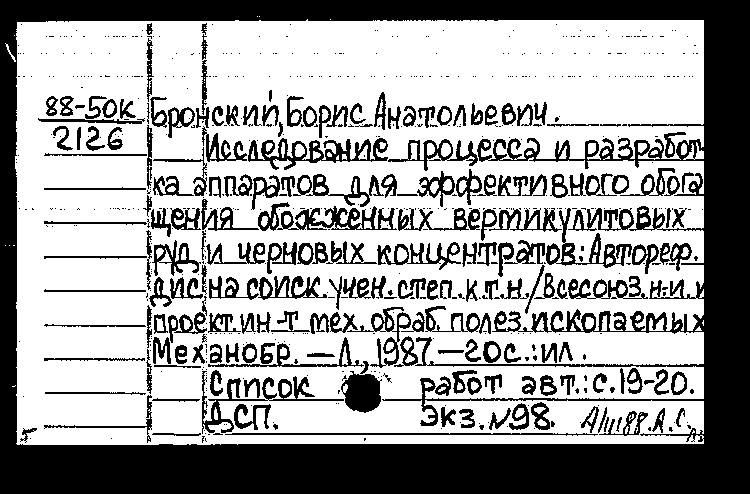 88-50К Бронский, Борис Анатольевич.
2126 Исследование процесса и разработ-
ка аппаратов для эффективного обога
щения обожжённых вермикулитовых
руд и черновых концентратов: Автореф.
дис на соиск. учен. степ. к.т.н./Всесоюз. н.-и. и
проект. ин-т мех. обраб. полез. ископаемых
Механобр. — Л., 1987. — 20с.: ил.
Список работ авт.: с. 19-20.
ДСП. Экз. №98.